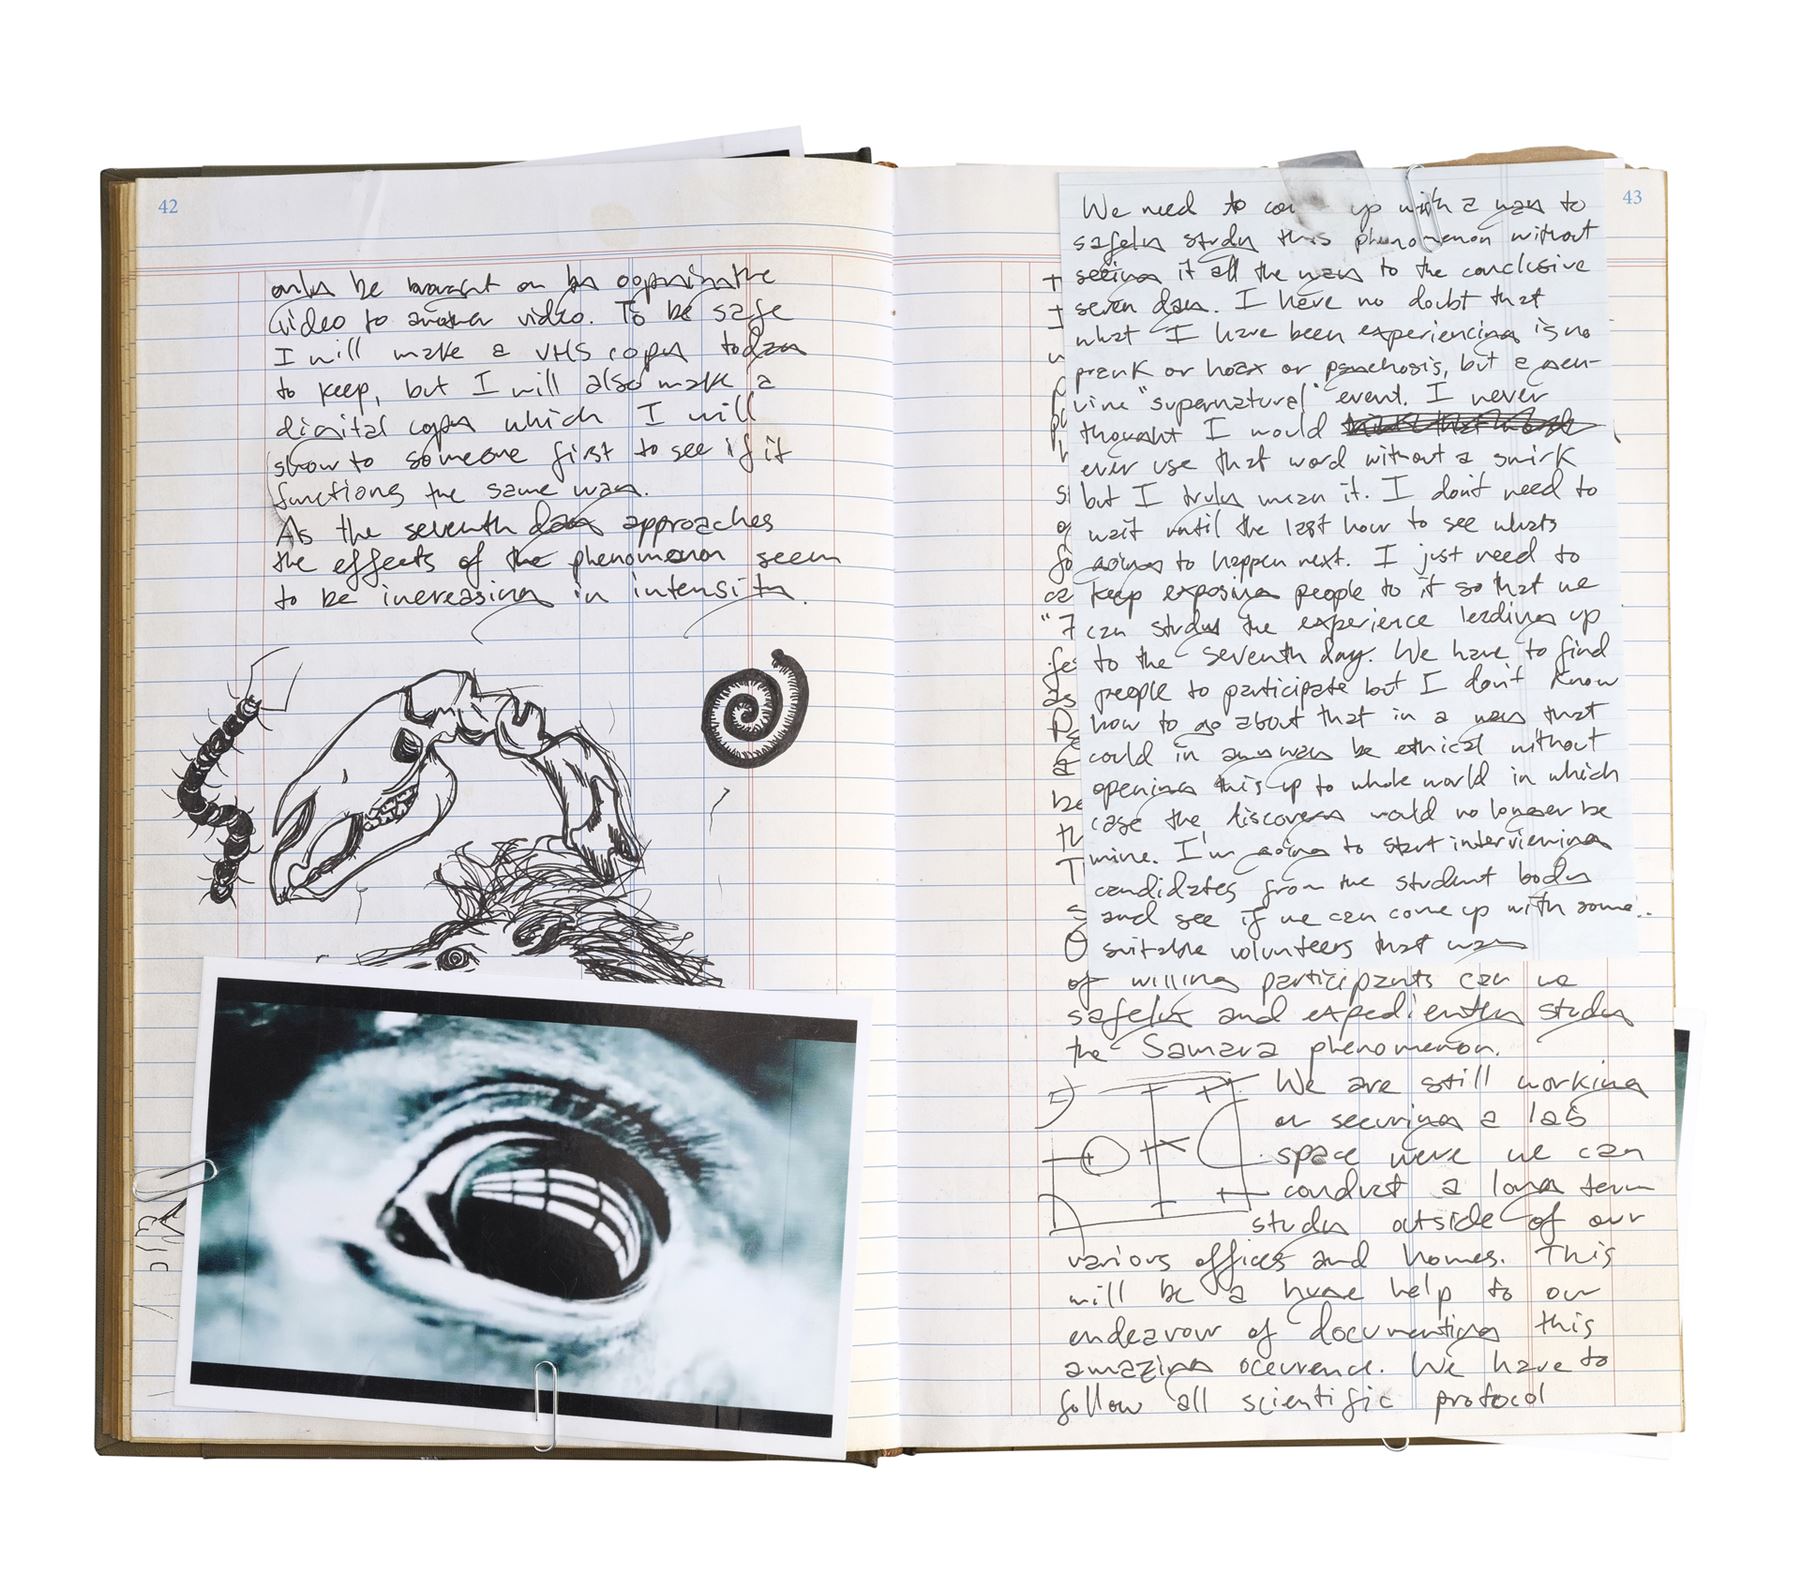 42
only be brought on by copying the
video to another video. To be safe
I will make a VHS copy today
to keep, but I will also make a
digital copy which I will
show to someone first to see if it
functions the same way.
As the seventh day approaches
the effects of the phenomenon seem
to be increasing in intensity.
43
We need to co up with a way to
safely study this phenomenon without
seeing it all the way to the conclusive
seven day. I have no doubt that
what I have been experiencing is no
prank or hoax or psychosis, but a gen-
uine "supernatural" event. I never
thought I would
ever use that word without a smirk
but I truly mean it. I don't need to
wait until the last hour to see whats
going to happen next. I just need to
keep exposing people to it so that we
can study the experience leading up
to the seventh day. We have to find
people to participate but I don't know
how to go about that in a way that
could in any way be ethical without
opening this up to whole world in which
case the discovery would no longer be
mine. I'm going to start interviewing
candidates from the student body
and see if we can come up with some..
suitable volunteers that way
of willing participants can we
safely and expediently study
the Samara phenomenon.
We are still working
on securing a lab
space were we can
conduct a long term
study outside of our
various offices and homes. This
will be a huge help to our
endeavour of documenting this
amazing occurence. We have to
follow all scientific protocol